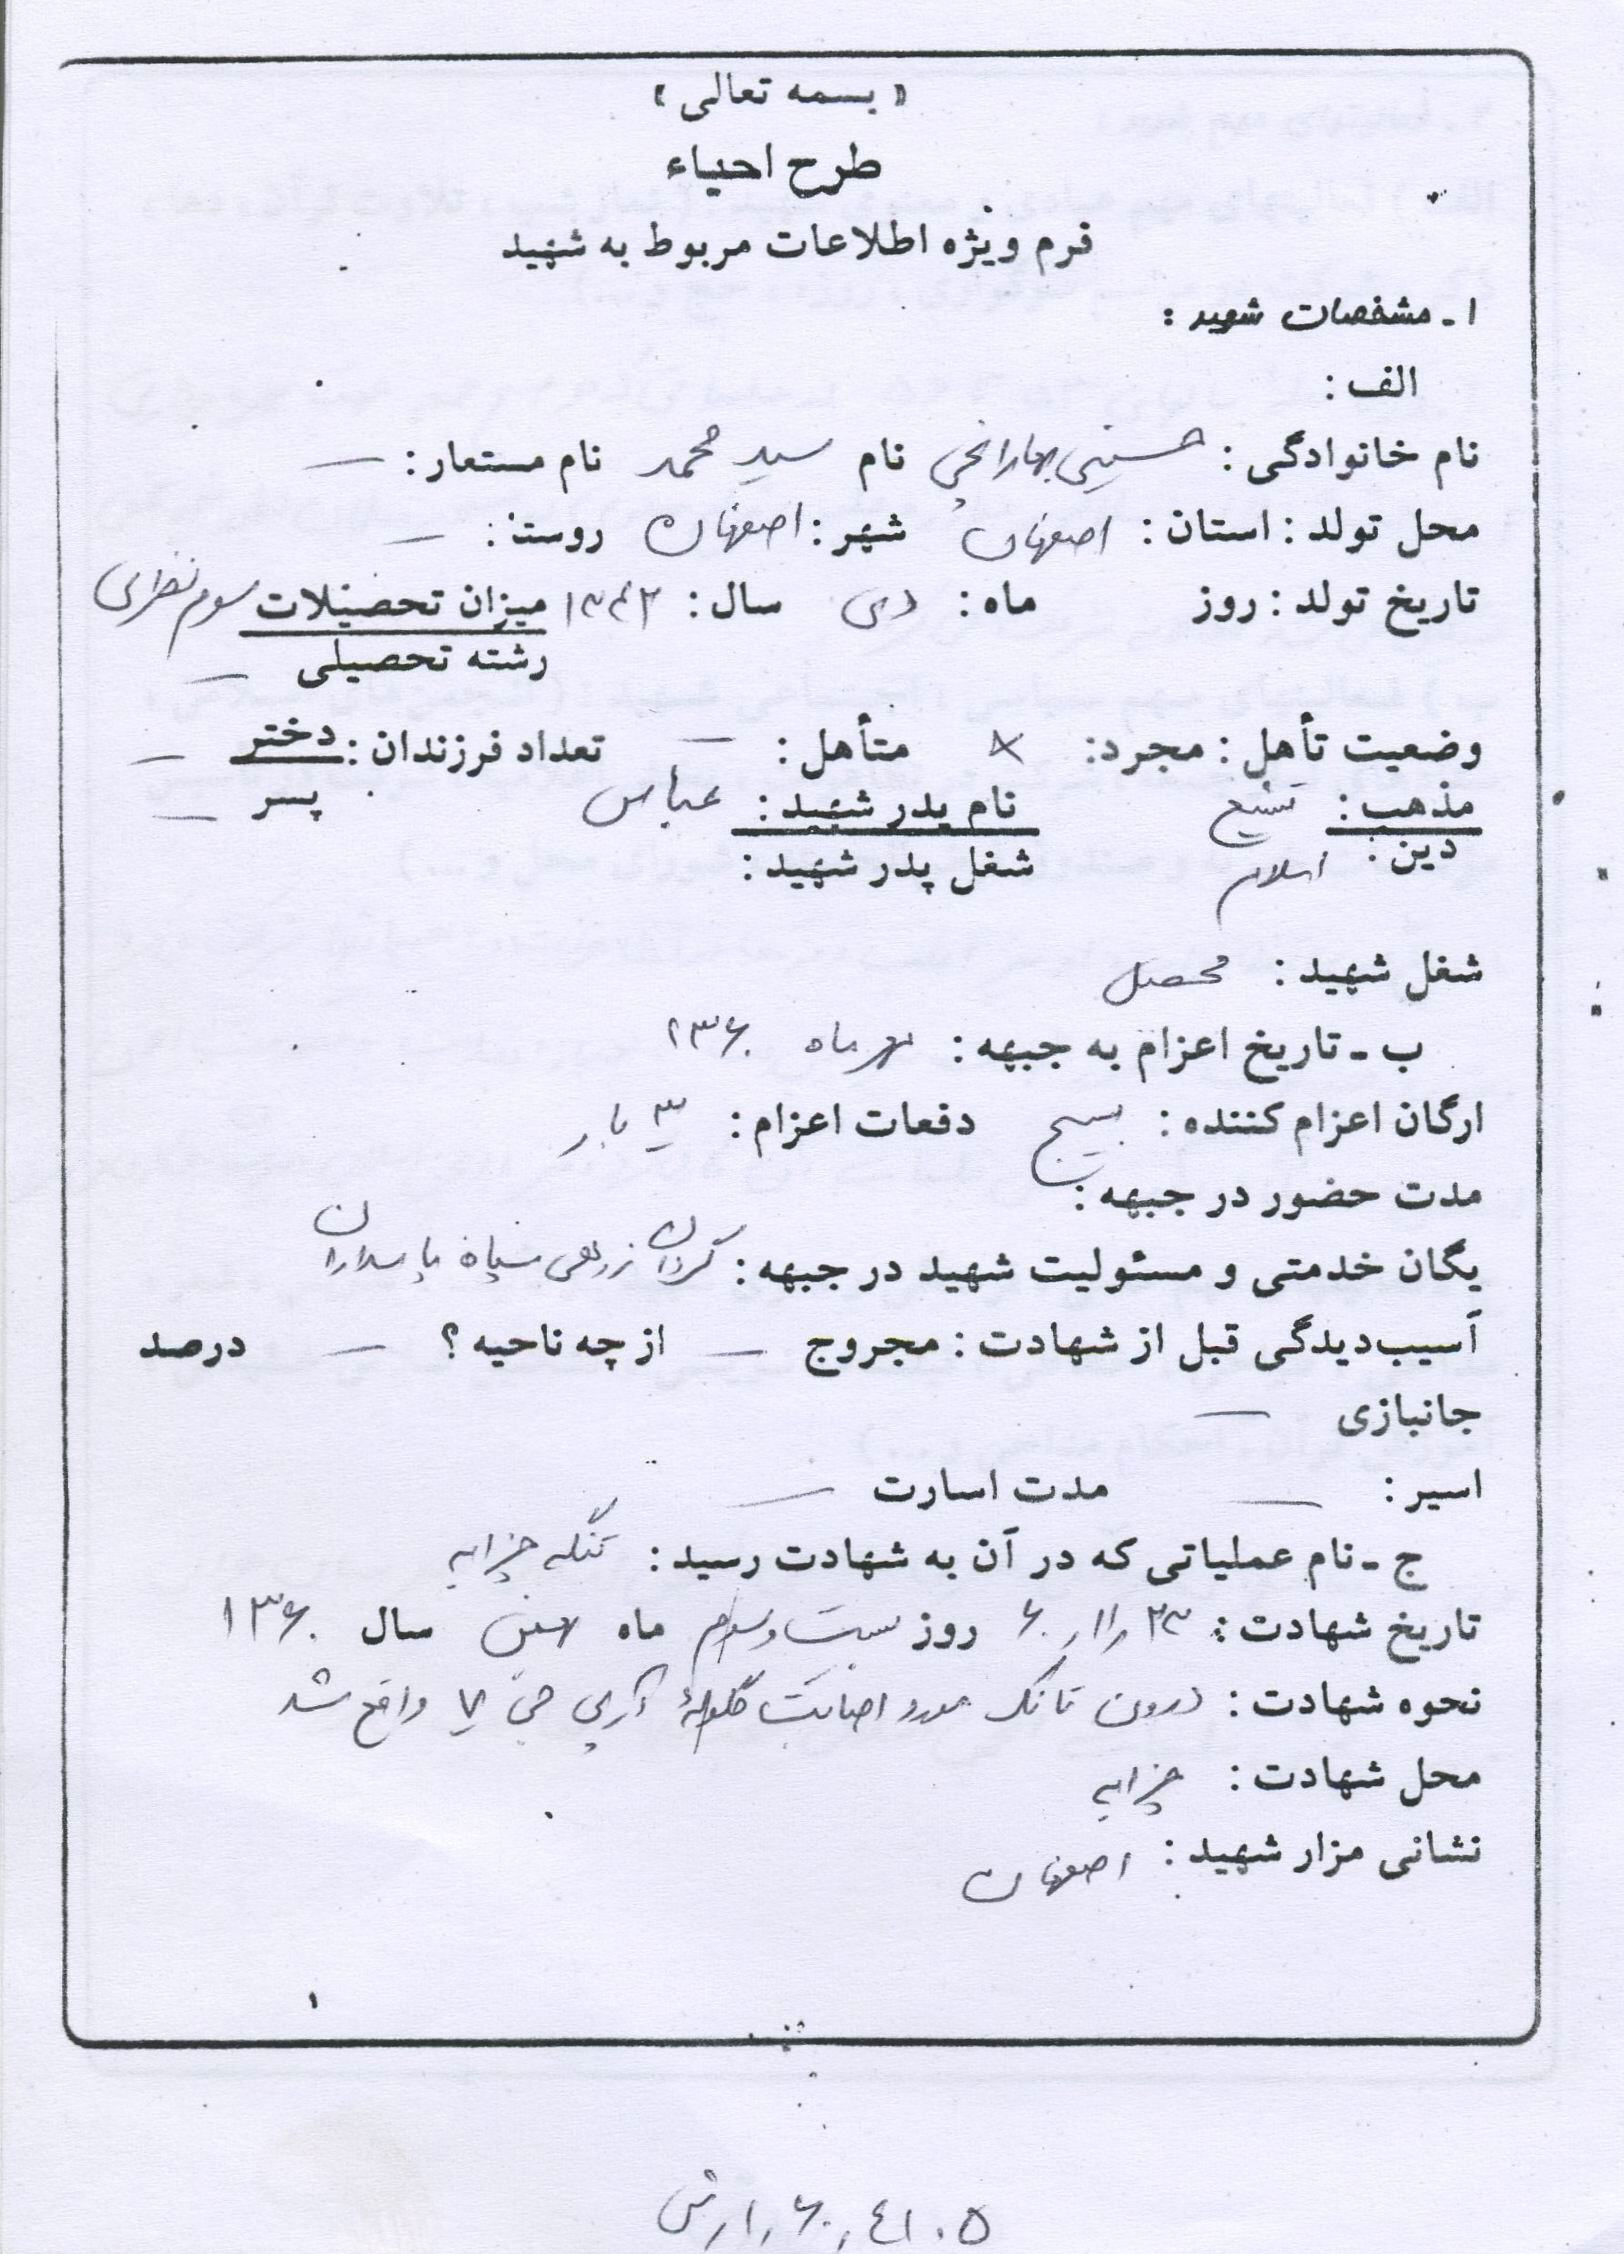 « بسمه تعالی »
طرح احیاء
فرم ویژه اطلاعات مربوط به شهید
۱ ـ مشخصات شهید :
الف :
نام خانوادگی : حسینی بهارانچی نام سید محمد نام مستعار : —
محل تولد : استان : اصفهان شهر : اصفهان روستا : —
تاریخ تولد : روز ماه : دی سال : ۱۳۴۲ میزان تحصیلات سوم نظری
رشته تحصیلی —
وضعیت تأهل : مجرد : × متأهل : — تعداد فرزندان : دختر —
مذهب : تشیع نام پدر شهید : عباس پسر —
دین : اسلام شغل پدر شهید :
شغل شهید : محصل
ب ـ تاریخ اعزام به جبهه : مهر ماه ۱۳۶۰
ارگان اعزام کننده : بسیج دفعات اعزام : ۳ بار
مدت حضور در جبهه :
یگان خدمتی و مسئولیت شهید در جبهه : گردان زرهی سپاه پاسداران
آسیب‌دیدگی قبل از شهادت : مجروح — از چه ناحیه ؟ — درصد
جانبازی —
اسیر : — مدت اسارت —
ج ـ نام عملیاتی که در آن به شهادت رسید : تنگه چزابه
تاریخ شهادت : ۲۳ ر ۱۱ ر ۶۰ روز بیست و سوم ماه بهمن سال ۱۳۶۰
نحوه شهادت : درون تانک مورد اصابت گلوله آرپی جی ۷ واقع شد
محل شهادت : چزابه
نشانی مزار شهید : اصفهان
۱